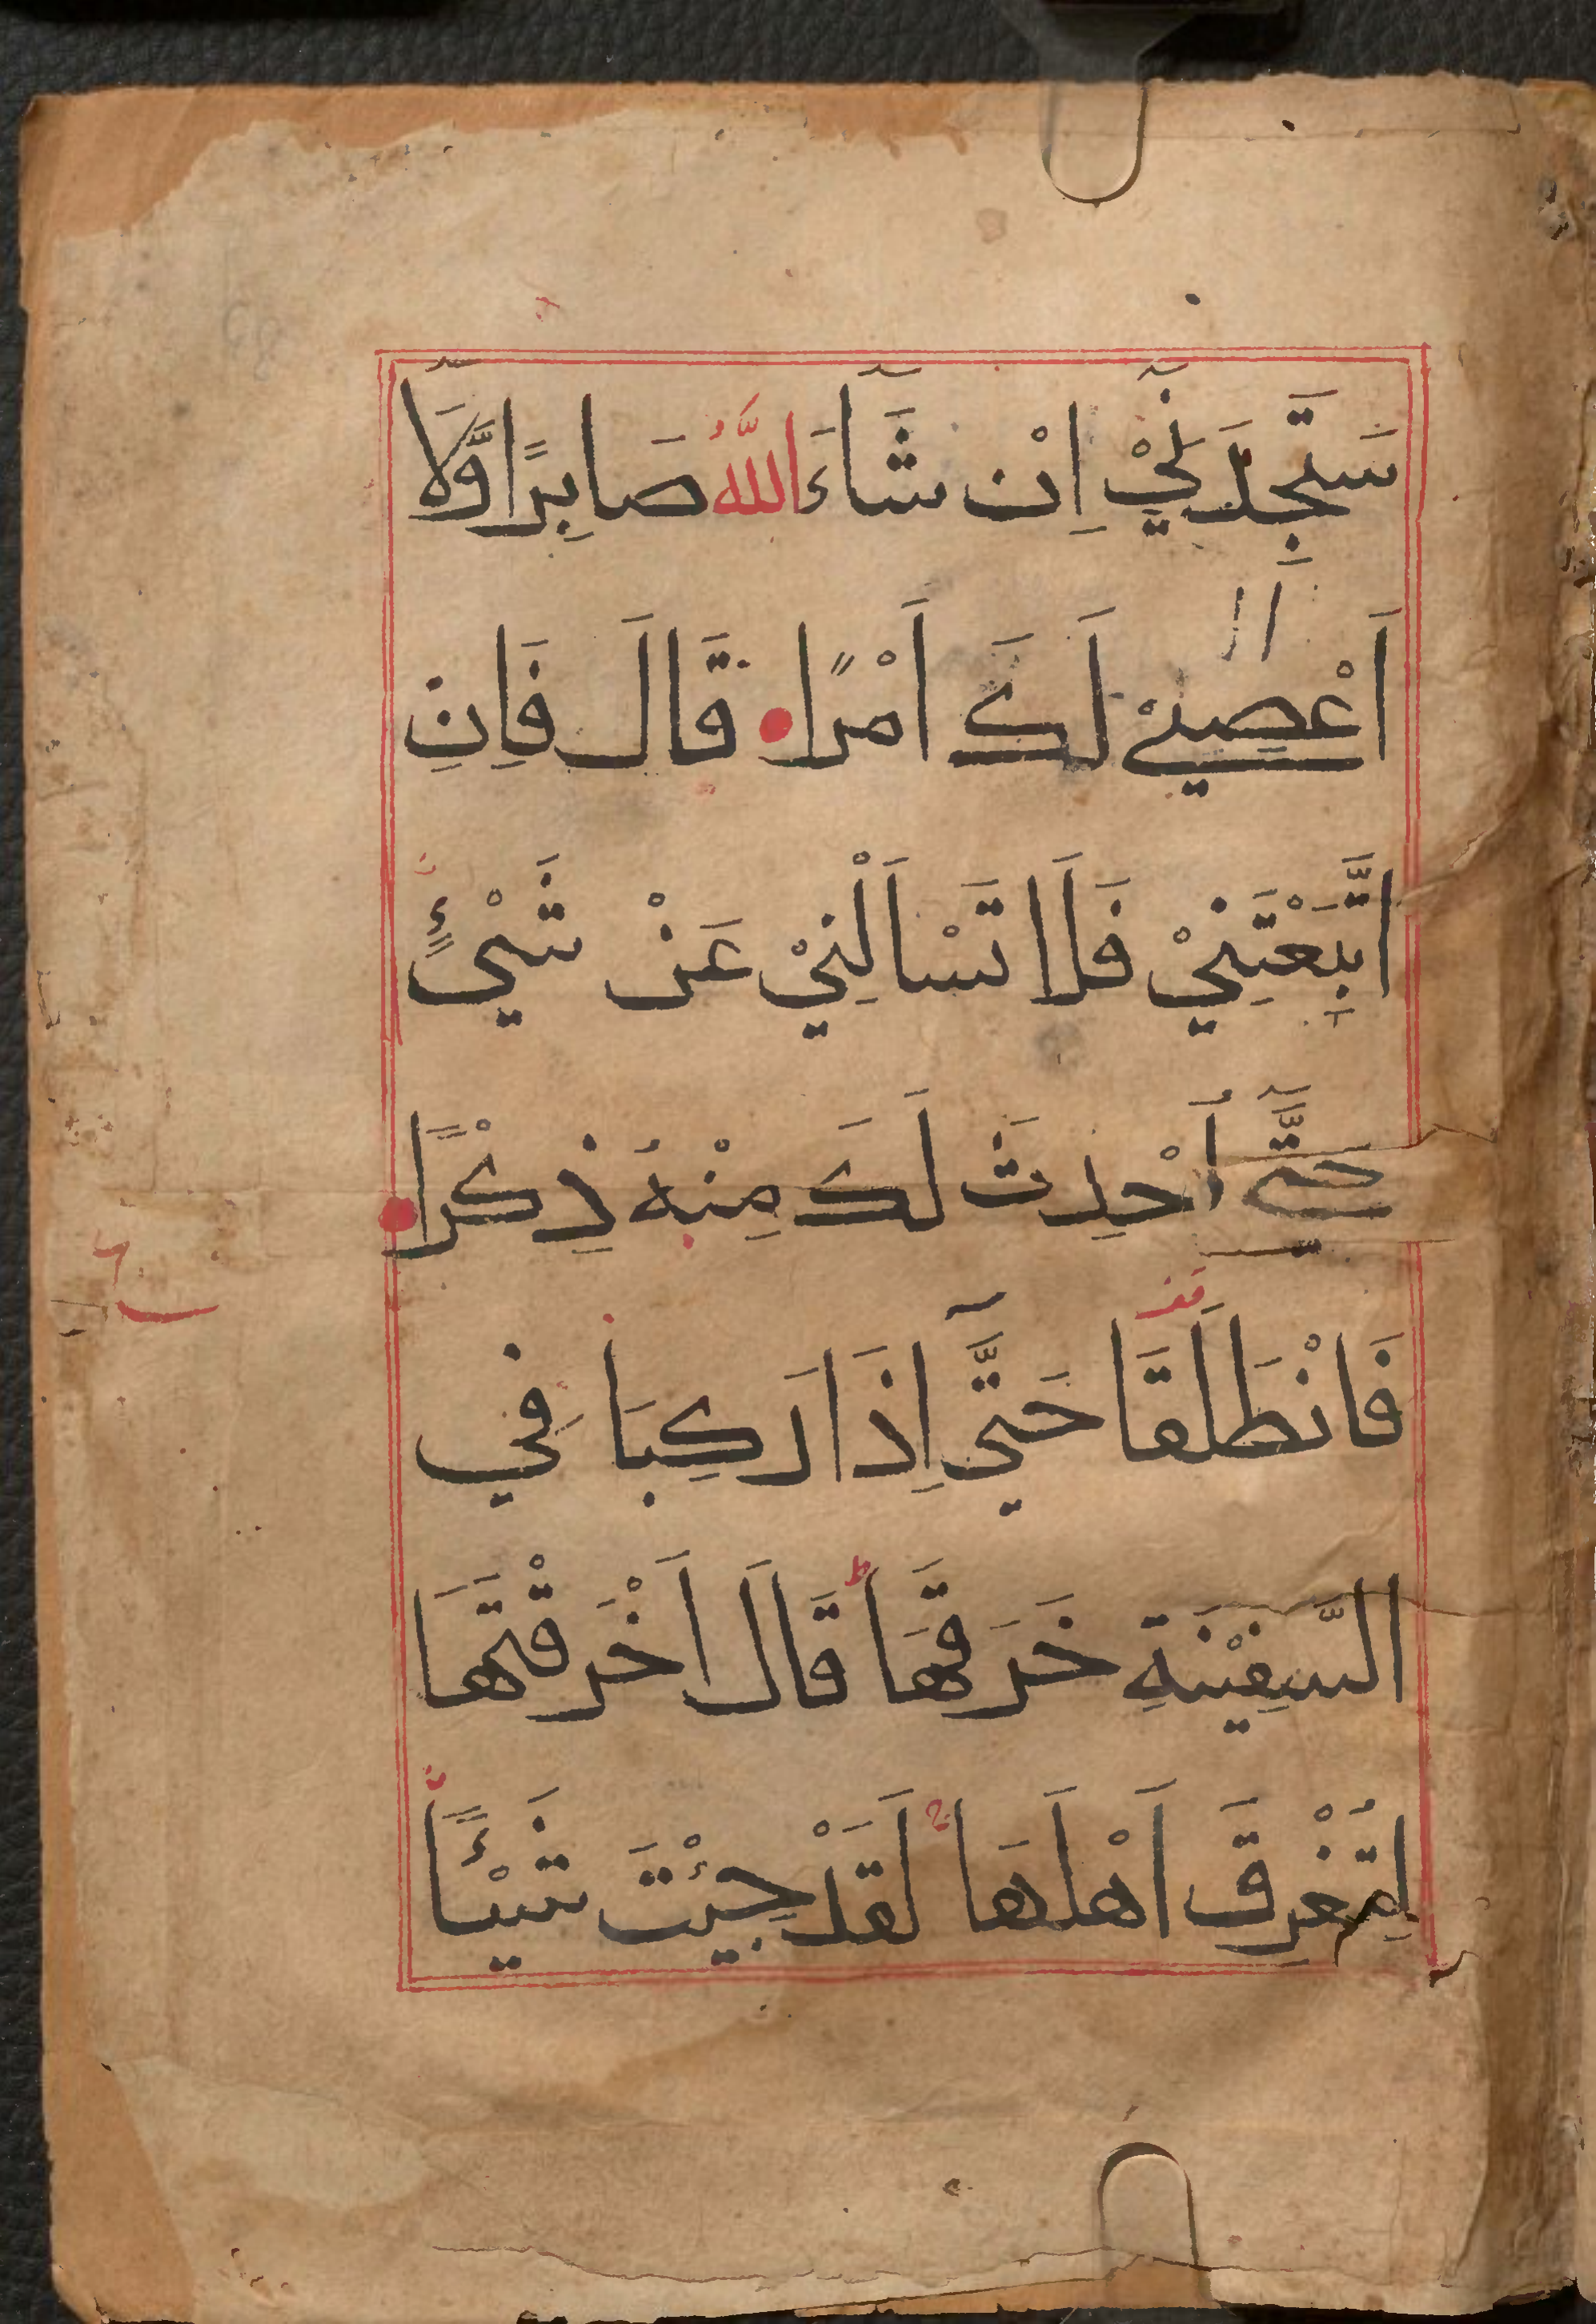 سَتَجِدُنِيْٓ اِنْ شَآءَ اللّٰهُ صَابِرًا وَّلَآ
اَعْصِيْ لَكَ اَمْرًا قَالَ فَاِنِ
اتَّبَعْتَنِيْ فَلَا تَسْاَلْنِيْ عَنْ شَيْءٍ
حَتّٰىٓ اُحْدِثَ لَكَ مِنْهُ ذِكْرًا
فَانْطَلَقَا حَتّٰىٓ اِذَا رَكِبَا فِي
السَّفِيْنَةِ خَرَقَهَا ط قَالَ اَخَرَقْتَهَا
لِتُغْرِقَ اَهْلَهَا ج لَقَدْ جِئْتَ شَيْئًا